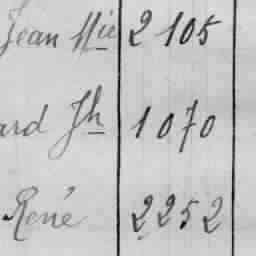 Jean Mie 2 105
ard Jh 1 070
René 2252